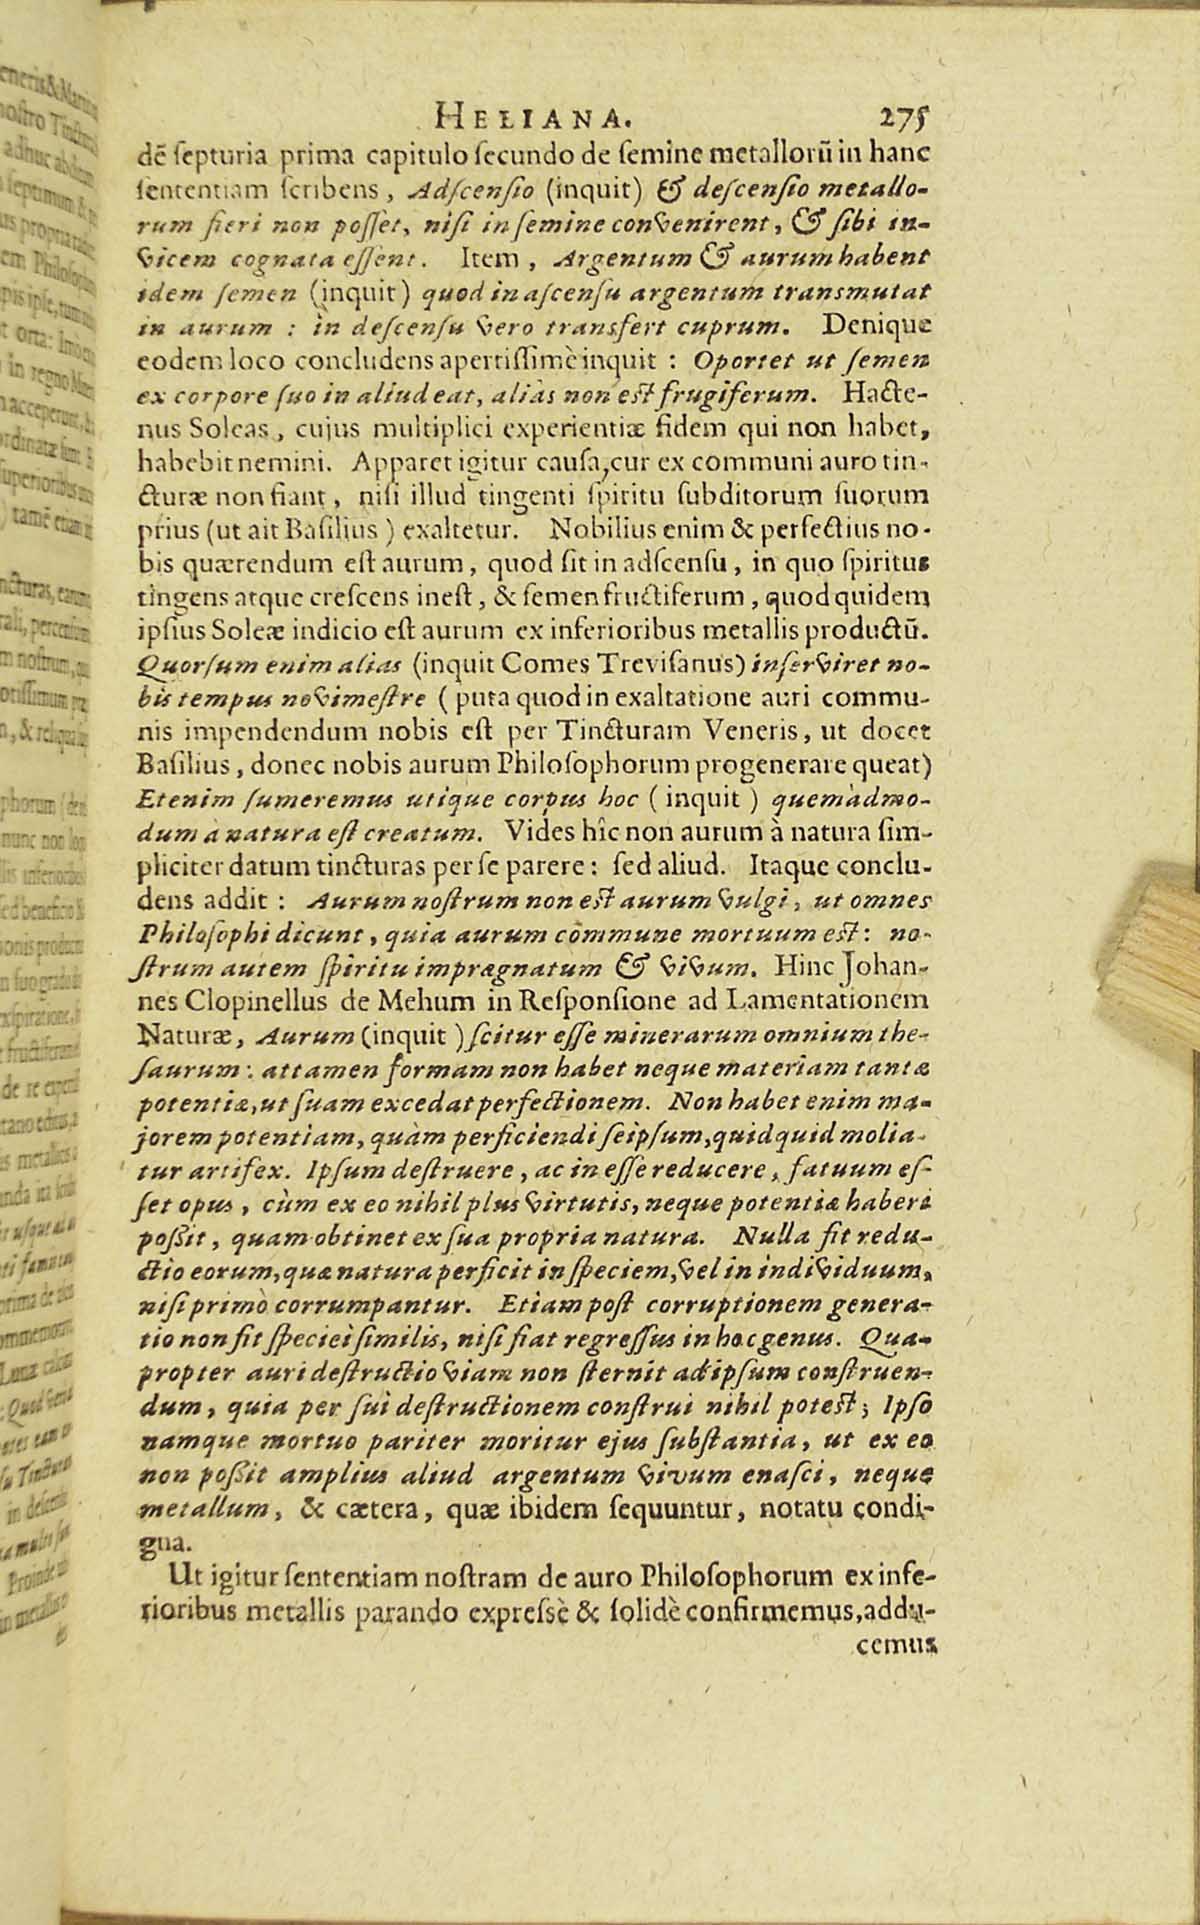 HELIANA. 275
dē ſepturia prima capitulo ſecundo de ſemine metallorũ in hanc
ſententiam ſcribens, Adſcenſio (inquit) & deſcenſio metallo-
rum fieri non poſſet, niſi in ſemine convenirent, & ſibi in-
vicem cognata eſſent. Item, Argentum & aurum habent
idem ſemen (inquit) quod in aſcenſu argentum transmutat
in aurum: in deſcenſu vero transfert cuprum. Denique
eodem loco concludens apertiſſimè inquit: Oportet ut ſemen
ex corpore ſuo in aliud eat, aliàs non eſt frugiferum. Hacte-
nus Soleas, cujus multiplici experientiæ fidem qui non habet,
habebit nemini. Apparet igitur cauſa, cur ex communi auro tin-
cturæ non fiant, niſi illud tingenti ſpiritu ſubditorum ſuorum
prius (ut ait Baſilius) exaltetur. Nobilius enim & perfectius no-
bis quærendum eſt aurum, quod ſit in adſcenſu, in quo ſpiritus
tingens atque creſcens ineſt, & ſemen fructiferum, quod quidem
ipſius Soleæ indicio eſt aurum ex inferioribus metallis productũ.
Quorſum enim alias (inquit Comes Treviſanus) inſerviret no-
bis tempus novimeſtre (puta quod in exaltatione auri commu-
nis impendendum nobis eſt per Tincturam Veneris, ut docet
Baſilius, donec nobis aurum Philoſophorum progenerare queat)
Etenim ſumeremus utique corpus hoc (inquit) quemadmo-
dum à natura eſt creatum. Vides hîc non aurum à natura ſim-
pliciter datum tincturas per ſe parere: ſed aliud. Itaque conclu-
dens addit: Aurum noſtrum non eſt aurum vulgi, ut omnes
Philoſophi dicunt, quia aurum commune mortuum eſt: no-
ſtrum autem ſpiritu imprægnatum & vivum. Hinc Johan-
nes Clopinellus de Mehum in Reſponſione ad Lamentationem
Naturæ, Aurum (inquit) ſcitur eſſe minerarum omnium the-
ſaurum: attamen formam non habet neque materiam tantæ
potentiæ, ut ſuam excedat perfectionem. Non habet enim ma-
jorem potentiam, quàm perficiendi ſeipſum, quidquid molia-
tur artifex. Ipſum deſtruere, ac in eſſe reducere, fatuum eſ-
ſet opus, cùm ex eo nihil plus virtutis, neque potentiæ haberi
poſſit, quam obtinet ex ſua propria natura. Nulla fit redu-
ctio eorum, quæ natura perficit in ſpeciem, vel in individuum,
niſi primò corrumpantur. Etiam poſt corruptionem genera-
tio non fit ſpeciei ſimilis, niſi fiat regreſſus in hoc genus. Qua-
propter auri deſtructio viam non ſternit ad ipſum conſtruen-
dum, quia per ſui deſtructionem conſtrui nihil poteſt; Ipſo
namque mortuo pariter moritur ejus ſubſtantia, ut ex eo
non poſſit amplius aliud argentum vivum enaſci, neque
metallum, & cætera, quæ ibidem ſequuntur, notatu condi-
gna.
Ut igitur ſententiam noſtram de auro Philoſophorum ex infe-
rioribus metallis parando expreſſè & ſolidè confirmemus, addu-
cemus